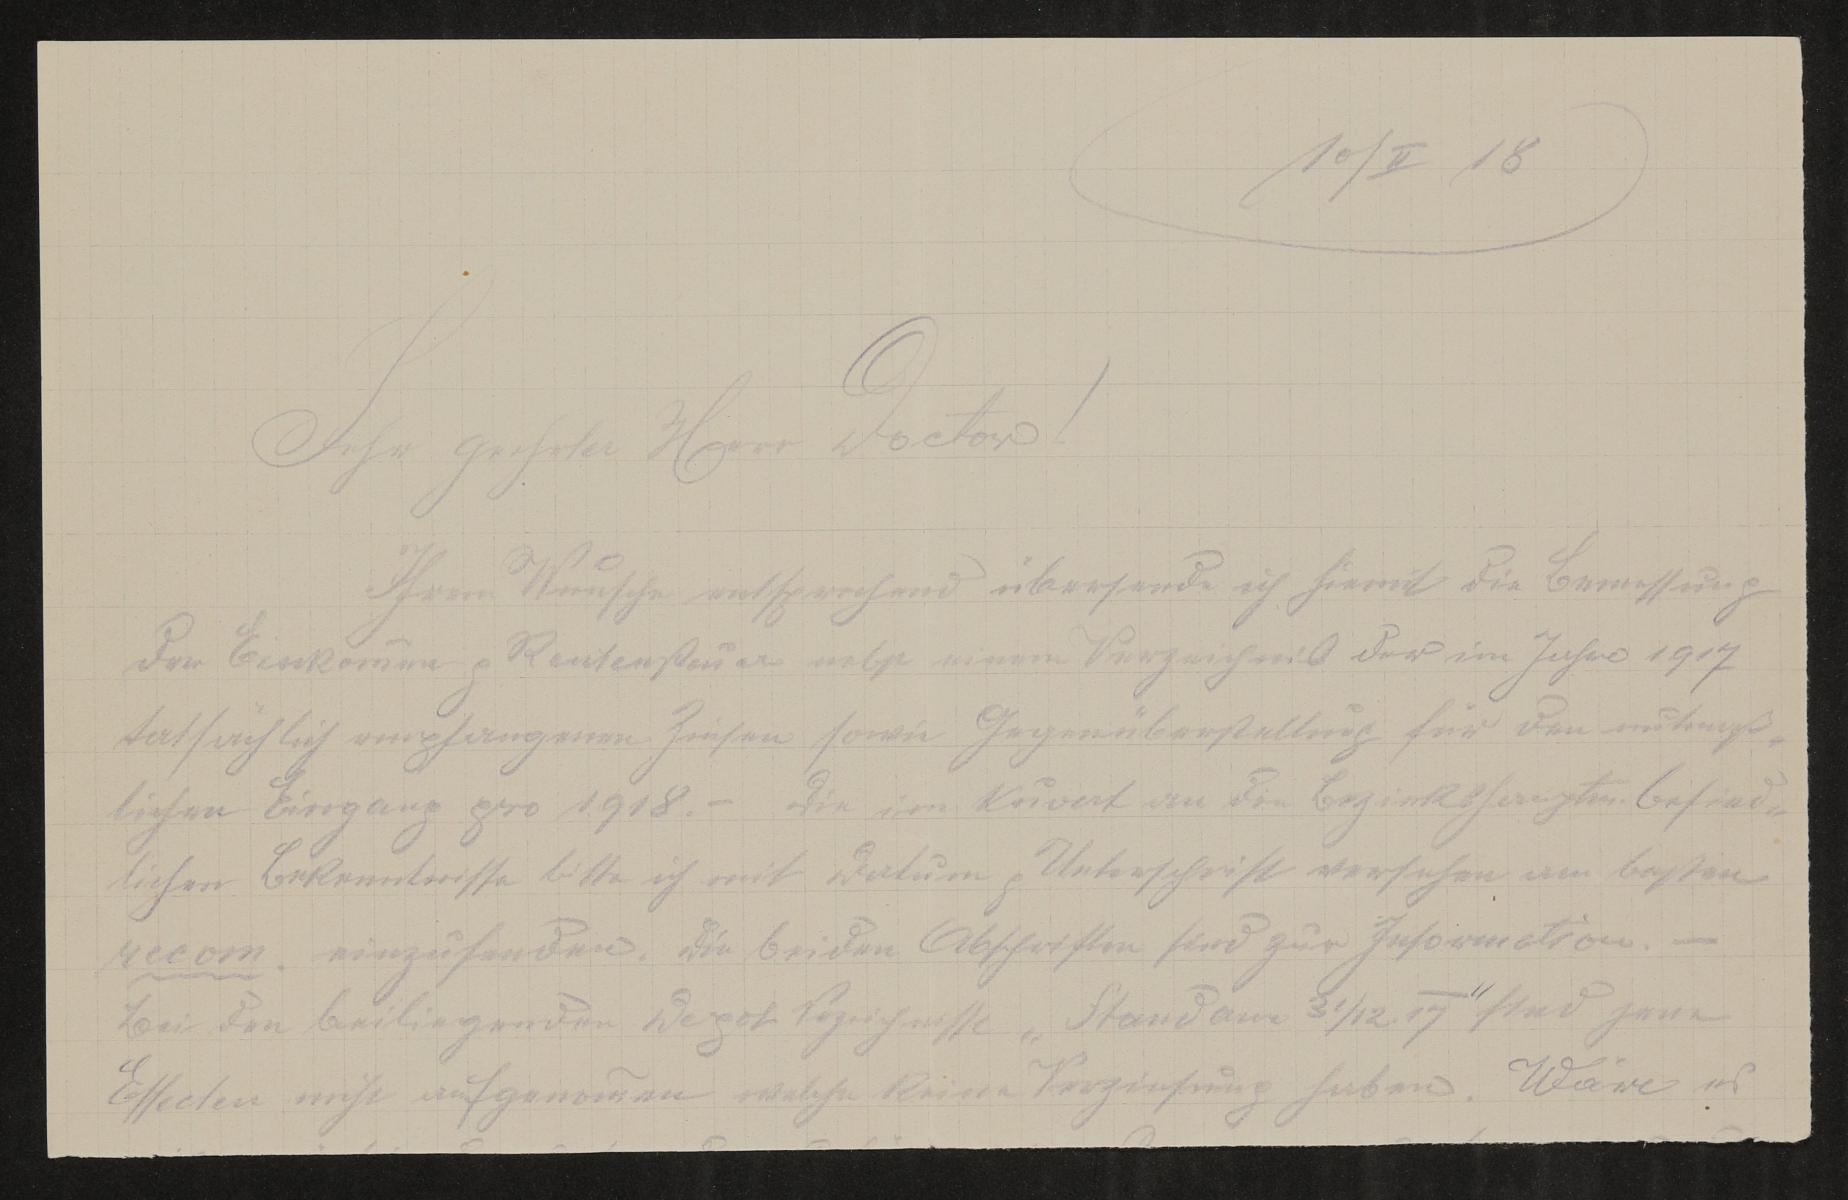 10/II 18
Sehr geehrter Herr Doctor!
Ihrem Wunsche entsprechend übersende ich hiermit die Bemessung
der Einkom̄en & Rentensteuer nebst einem Verzeichniß der im Jahre 1917
tatsächlich empfangenen Zinsen sowie Gegenüberstellung für den mutmaß-
lichen Eingang pro 1918. – Die im Kuvert an die Bezirkshauptm. befind-
lichen Bekenntnisse bitte ich mit Datum & Unterschrift versehen am besten
recom. einzusenden. Die beiden Abschriften sind zur Information. –
Bei den beiliegenden Depot „Stand am 31/12 17“ sind jene
Effecten nicht aufgenom̄en welche keine Verzinsung haben. Wäre es